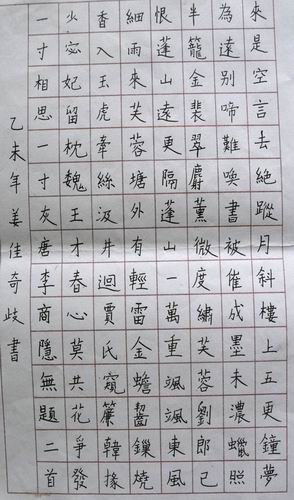 來是空言去絕蹤月斜樓上五更鐘夢
為遠別啼難喚書被催成墨未濃蠟照
半籠金裴翠麝薰微度繡芙蓉劉郎已
恨蓬山遠更隔蓬山一萬重颯颯東風
細雨來芙蓉塘外有輕雷金蟾齧鏁燒
香入玉虎牽絲汲井迴賈氏窺簾韓掾
少宓妃留枕魏王才春心莫共花爭發
一寸相思一寸灰唐李商隱無題二首
乙未年姜佳奇歧書